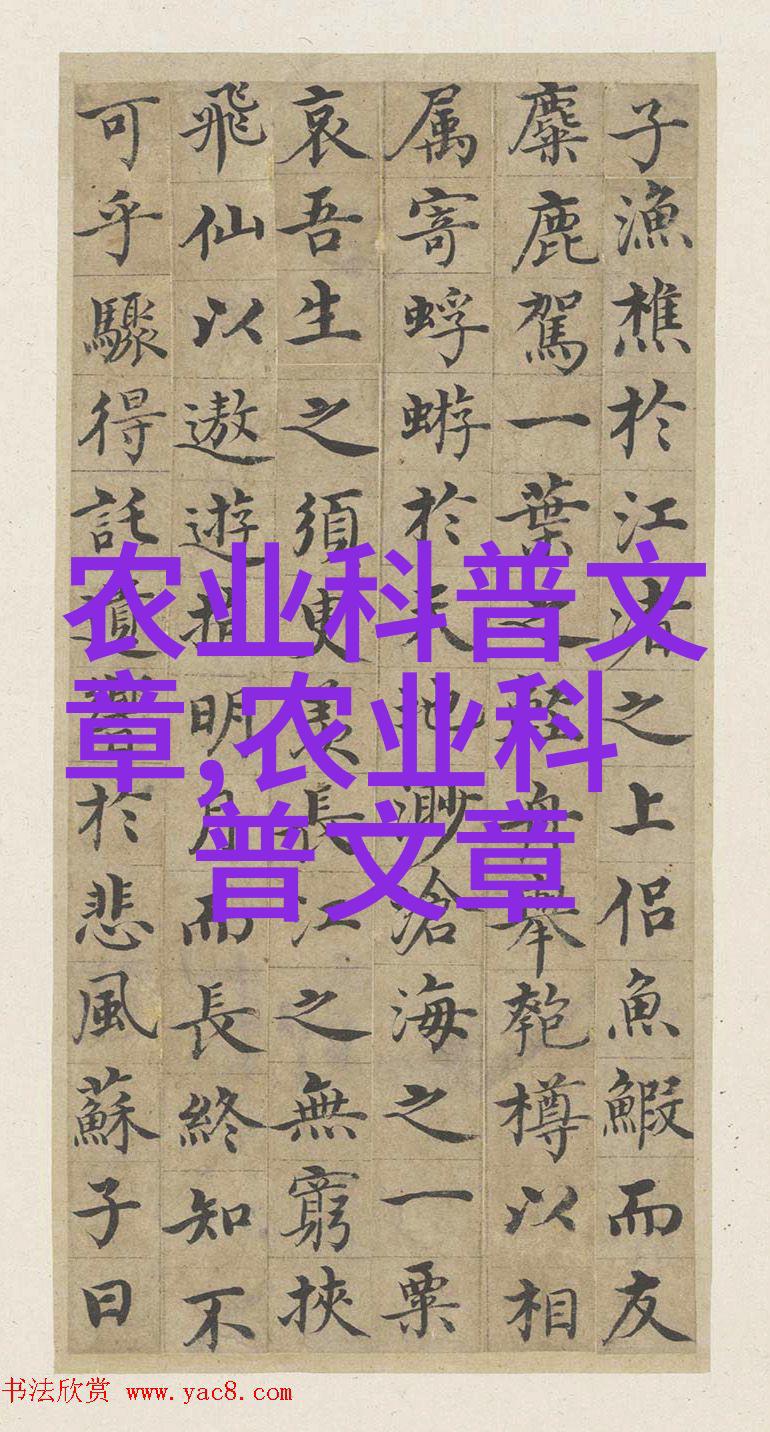 子漁樵於江渚之上侣魚鰕而友
麋鹿駕一葉之輕舟舉匏樽以相
属寄蜉蝣於天地渺滄海之一粟
哀吾生之須臾羨長江之無窮挾
飛仙以遨遊抱明月而長終知不
可乎驟得託遺響於悲風蘇子曰
农业科普文
章,农业科
普文章
书法欣赏 www.yac8.com